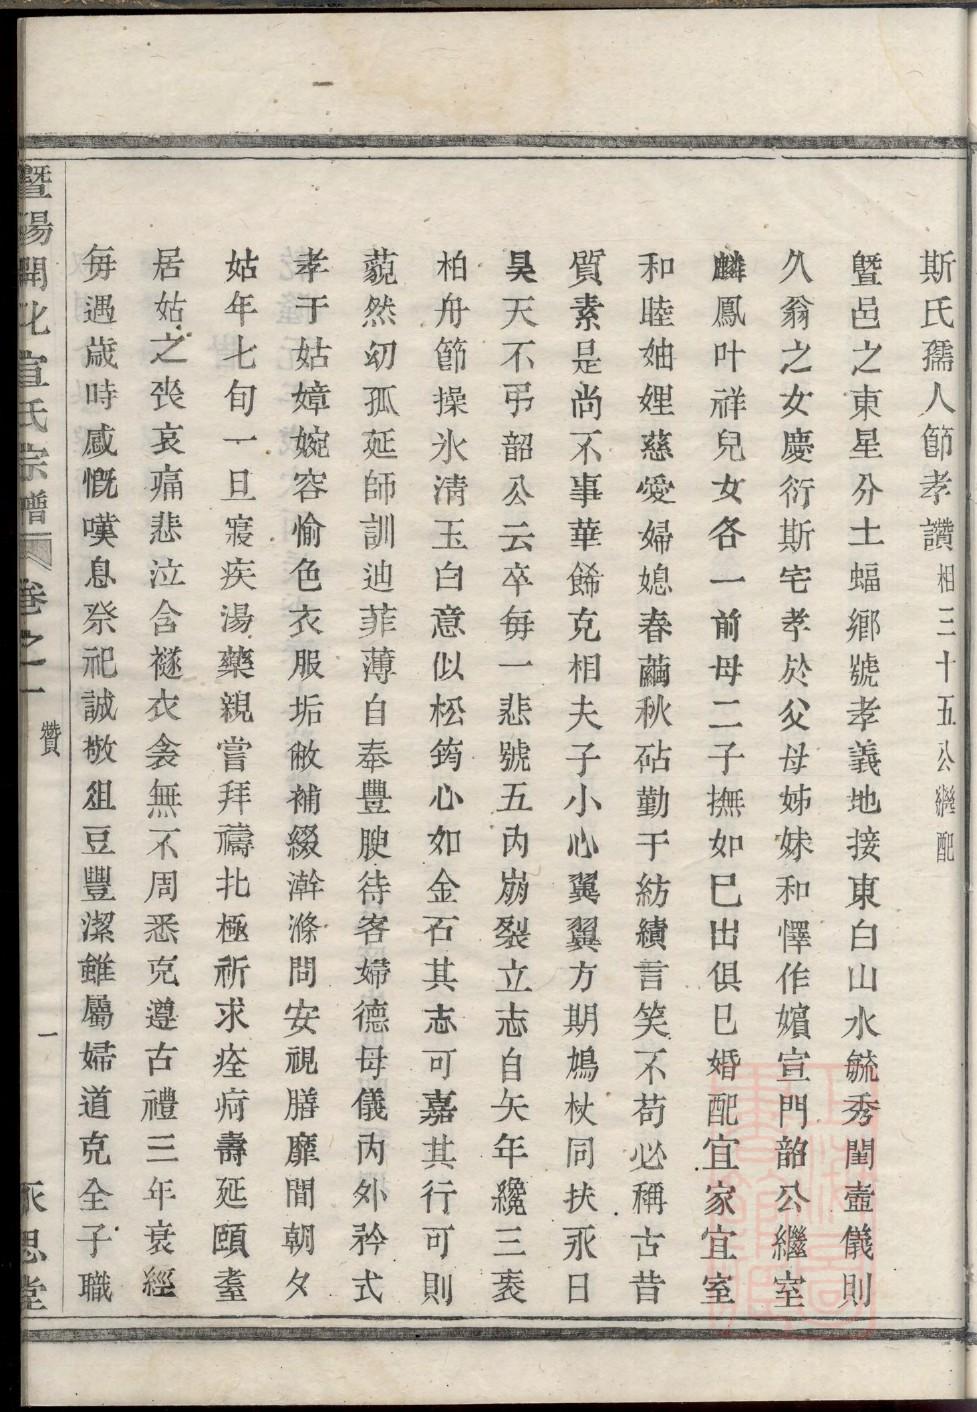 斯氏孺人節孝讚相三十五公繼配
曁邑之東星分土蝠鄉號孝義地接東白山水毓秀閨壼儀則
久翁之女慶衍斯宅孝於父母姊妹和懌作嬪宣門韶公繼室
麟鳳叶祥兒女各一前母二子撫如巳出俱巳婚配宜家宜室
和睦妯娌慈愛婦媳春繭秋砧勤于紡績言笑不苟必稱古昔
質素是尚不事華餙克相夫子小心翼翼方期鳩杖同扶永日
昊天不弔韶公云卒每一悲號五內崩裂立志自矢年纔三袠
柏舟節操氷淸玉白意似松筠心如金石其志可嘉其行可則
藐然幼孤延師訓迪菲薄自奉豐腴待客婦德母儀內外矜式
孝于姑嫜婉容愉色衣服垢敝補綴澣滌問安視膳靡間朝夕
姑年七旬一旦寢疾湯藥親嘗拜禱北極祈求痊疴壽延頤耋
居姑之喪哀痛悲泣含襚衣衾無不周悉克遵古禮三年衰絰
每遇歲時感慨嘆息祭祀誠敬俎豆豐潔雖屬婦道克全子職
暨陽開化宣氏宗譜 卷之一 贊 一 永思堂